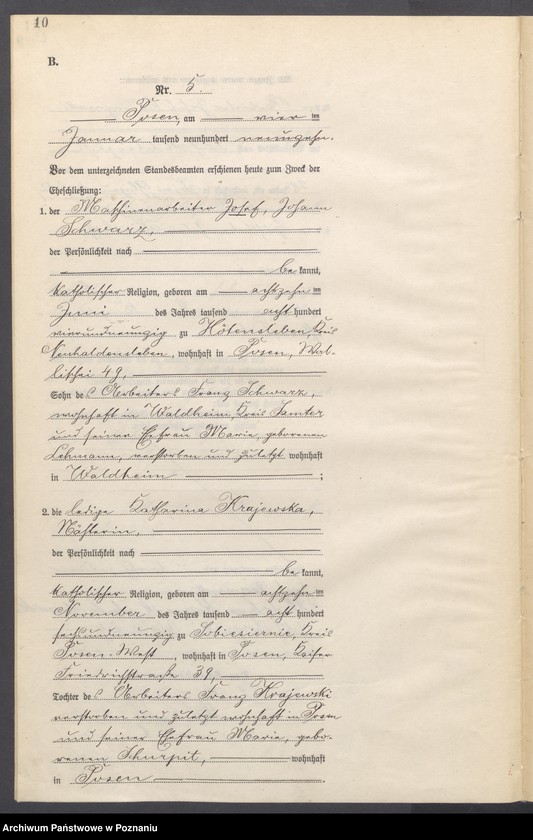 10
B.
Nr. 5.
Posen, am vier ten
Januar tausend neunhundert neunzehn.
Vor dem unterzeichneten Standesbeamten erschienen heute zum Zweck der
Eheschließung:
1. der Maschinenarbeiter Josef, Johann
Schwarz,
der Persönlichkeit nach
be kannt,
katholischer Religion, geboren am achtzehn ten
Juni des Jahres tausend acht hundert
vierundneunzig zu Hötensleben Kreis
Neuhaldensleben, wohnhaft in Posen, Wal-
lischei 49,
Sohn des Arbeiters Franz Schwarz,
wohnhaft in Waldheim, Kreis Samter
und seiner Ehefrau Marie, geborenen
Lehmann, verstorben und zuletzt wohnhaft
in Waldheim ;
2. die ledige Katharina Krajewska,
Näherin,
der Persönlichkeit nach
be kannt,
katholischer Religion, geboren am achtzehn ten
November des Jahres tausend acht hundert
sechsundneunzig zu Sobiesiernie, Kreis
Posen-West, wohnhaft in Posen, Kaiser
Friedrichstraße 39,
Tochter des Arbeiters Franz Krajewski
verstorben und zuletzt wohnhaft in Posen
und seiner Ehefrau Marie, gebo-
renen wohnhaft
in Posen .
Archiwum Państwowe w Poznaniu